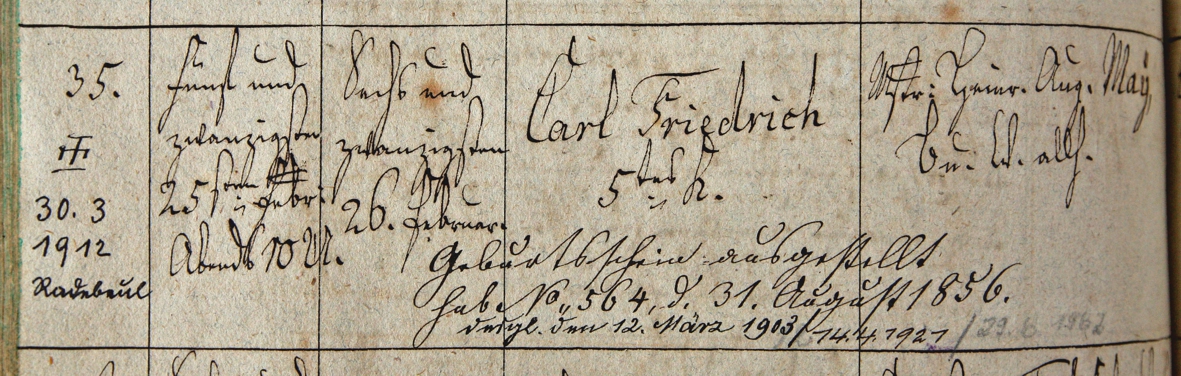 35.
30. 3
1912
Radebeul
Fünf und
zwanzigsten
25sten Febr.
Abends 10 U.
Sechs und
zwanzigsten
26. Februar.
Carl Friedrich
5tes K.
Mstr: Heinr. Aug. May,
Bu. W. allh.
Geburtsschein ausgestellt
habe No. 564, d. 31. August 1856.
desgl. den 12. März 1903/14.4.1921 /29.6 1962